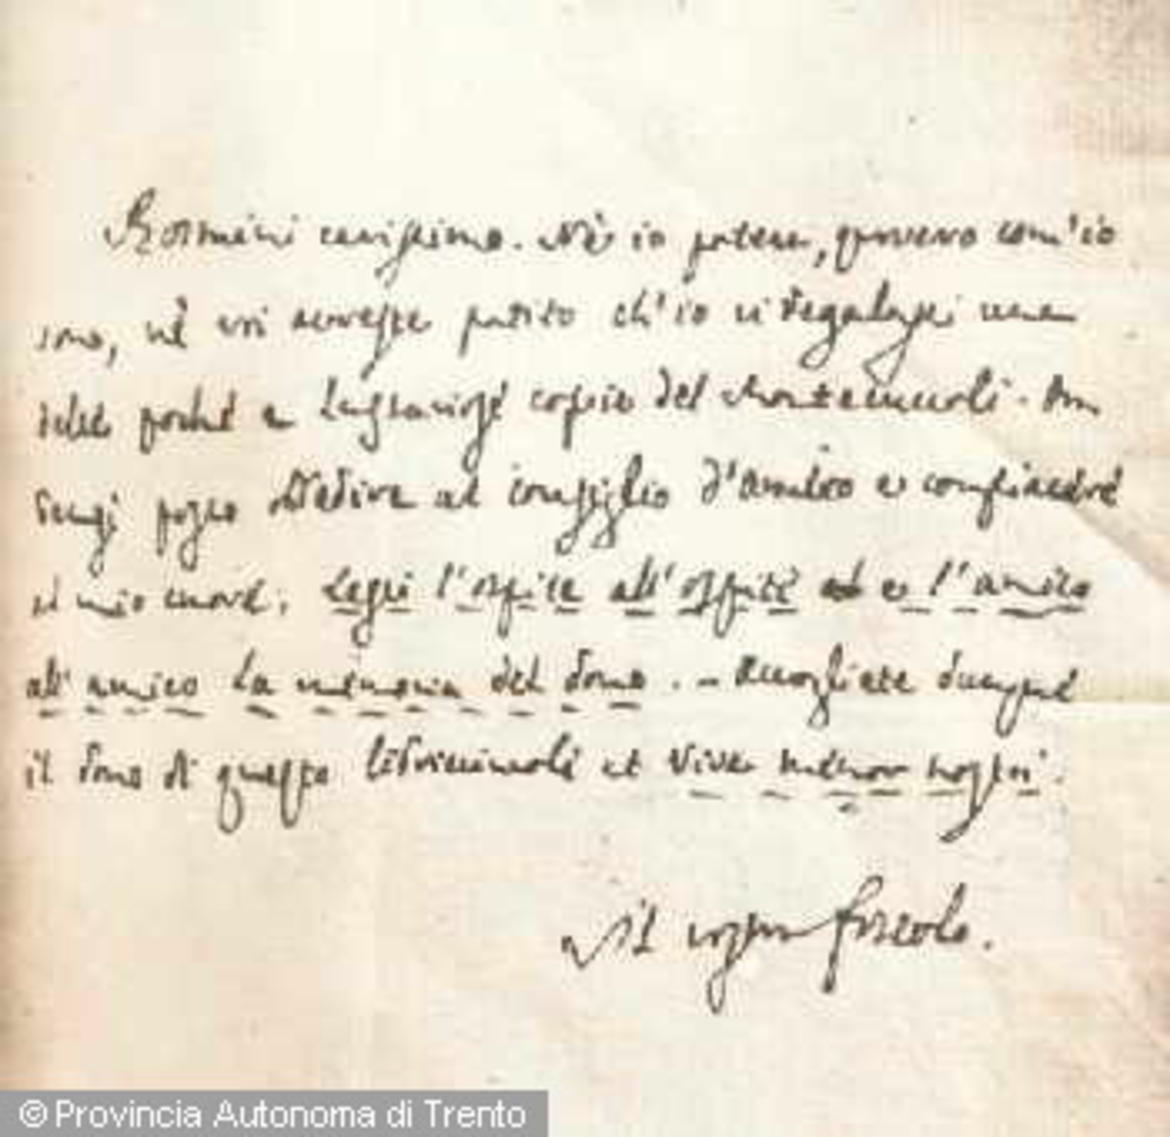 Rosmini carissimo. Nè io potea, povero com'io
sono, nè voi avreste patito ch'io vi regalassi una
delle poche e copie del Montecuccoli.
al consiglio d'amico e compiacere
il mio cuore: Lasci l'ospite all'ospite ed e l'amico
all'amico la memoria del dono. - Accogliete dunque
il dono di questo libricciuolo et vive memor nostri.
Il vostro Foscolo.
© Provincia Autonoma di Trento